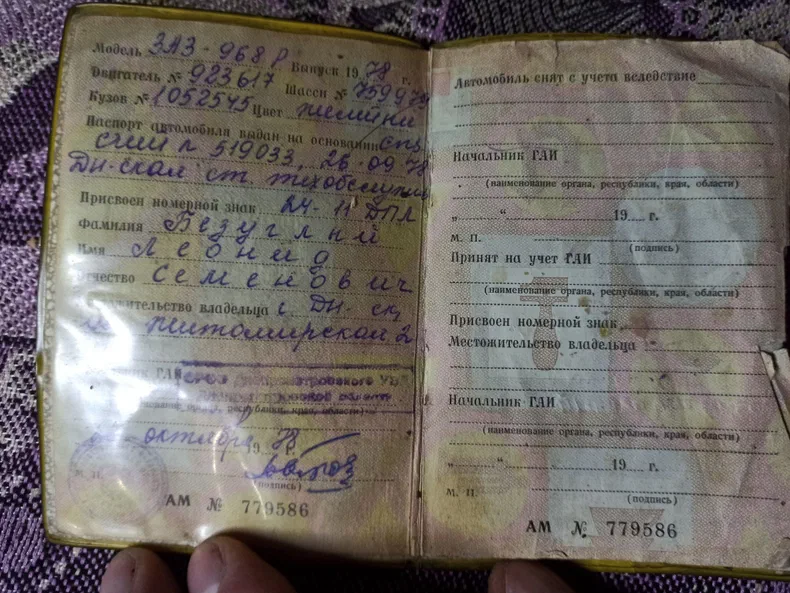 Модель ЗАЗ-968Р Выпуск 1978 г.
Двигатель № 923617 Шасси №
Кузов № 1052545 Цвет
Паспорт автомобиля выдан на основании
519033, 26-09 78
Присвоен номерной знак 24-11 ДПЛ
Фамилия Безуглый
Имя Леонид
Отчество Семенович
владельца
Житомирской 2
ГАИ
края, области)
октября 1978
(подпись)
М. П.
АМ № 779586
Автомобиль снят с учета вследствие
Начальник ГАИ
(наименование органа, республики, края, области)
„ “ 19 г.
М. П.
(подпись)
Принят на учет ГАИ
(наименование органа, республики, края, области)
Присвоен номерной знак
Местожительство владельца
Начальник ГАИ
(наименование органа, республики, края, области)
„ “ 19 г.
М. П.
(подпись)
АМ № 779586